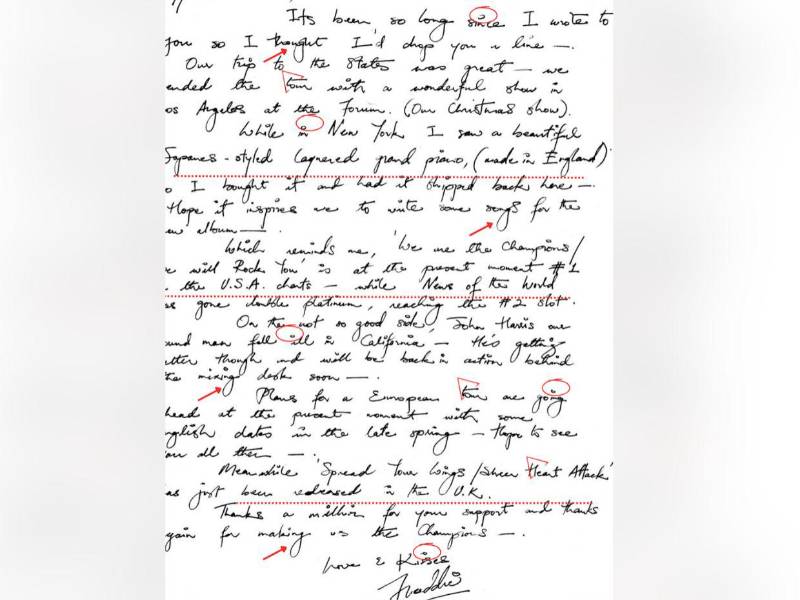 Its been so long since I wrote to
you so I thought I'd drop you a line —.
Our trip to the States was great — we
ended the tour with a wonderful show in
os Angeles at the Forum. (Our Christmas show).
While in New York I saw a beautiful
Japanes-styled laquered grand piano, (made in England)
o I bought it and had it shipped back here —.
Hope it inspires me to write some songs for the
ew album —.
Which reminds me, 'We are the Champions/
e will Rock You' is at the present moment #1
the U.S.A. charts — while 'News of the World
as gone double platinum, reaching the #2 slot.
On the not so good side, John Harris our
ound man fell ill in California — He's getting
etter though and will be back in action behind
the mixing desk soon —.
Plans for a European tour are going
head at the present moment with some
nglish dates in the late spring — Hope to see
you all then —.
Meanwhile 'Spread Your Wings/Sheer Heart Attack'
as just been released in the U.K.
Thanks a million for your support and thanks
gain for making us the Champions —.
Love & Kisses
Freddie